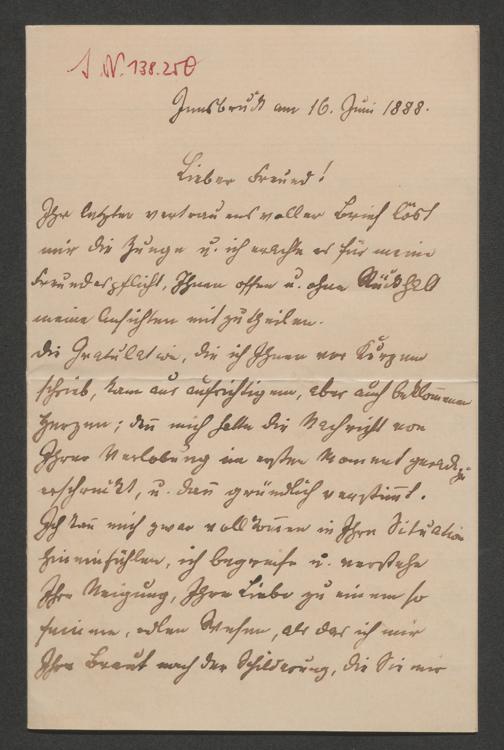 J. N. 138.250
Innsbruck am 16. Juni 1888.
Lieber Freund!
Ihr letzter vertrauensvoller Brief löst
mir die Zunge u. ich erachte es für meine
Freundespflicht, Ihnen offen u. ohne Rückhalt
meine Ansichten mitzutheilen.
Die Gratulation, die ich Ihnen vor Kurzem
schrieb, kam aus aufrichtigem, aber auch beklommenem
Herzen; denn mich hatte die Nachricht von
Ihrer Verlobung im ersten Moment geradezu
erschreckt, u. dann gründlich verstimmt.
Ich kann mich zwar vollkommen in Ihre Situation
hineinfühlen, ich begreife u. verstehe
Ihre Neigung, Ihre Liebe zu einem so
feinen, edlen Wesen, als das ich mir
Ihre Braut nach der Schilderung, die Sie mir